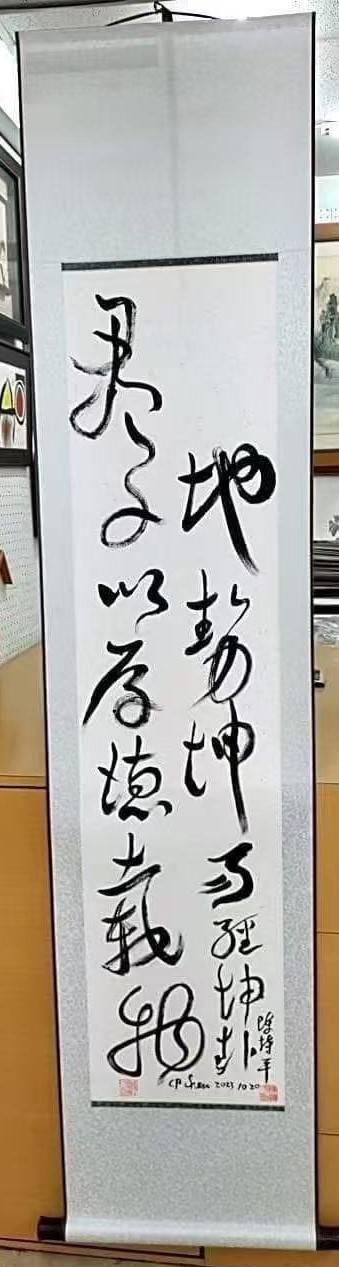 地勢坤 易經坤卦
陳持平
君子以厚德載物
CP Chen 2023 10 20